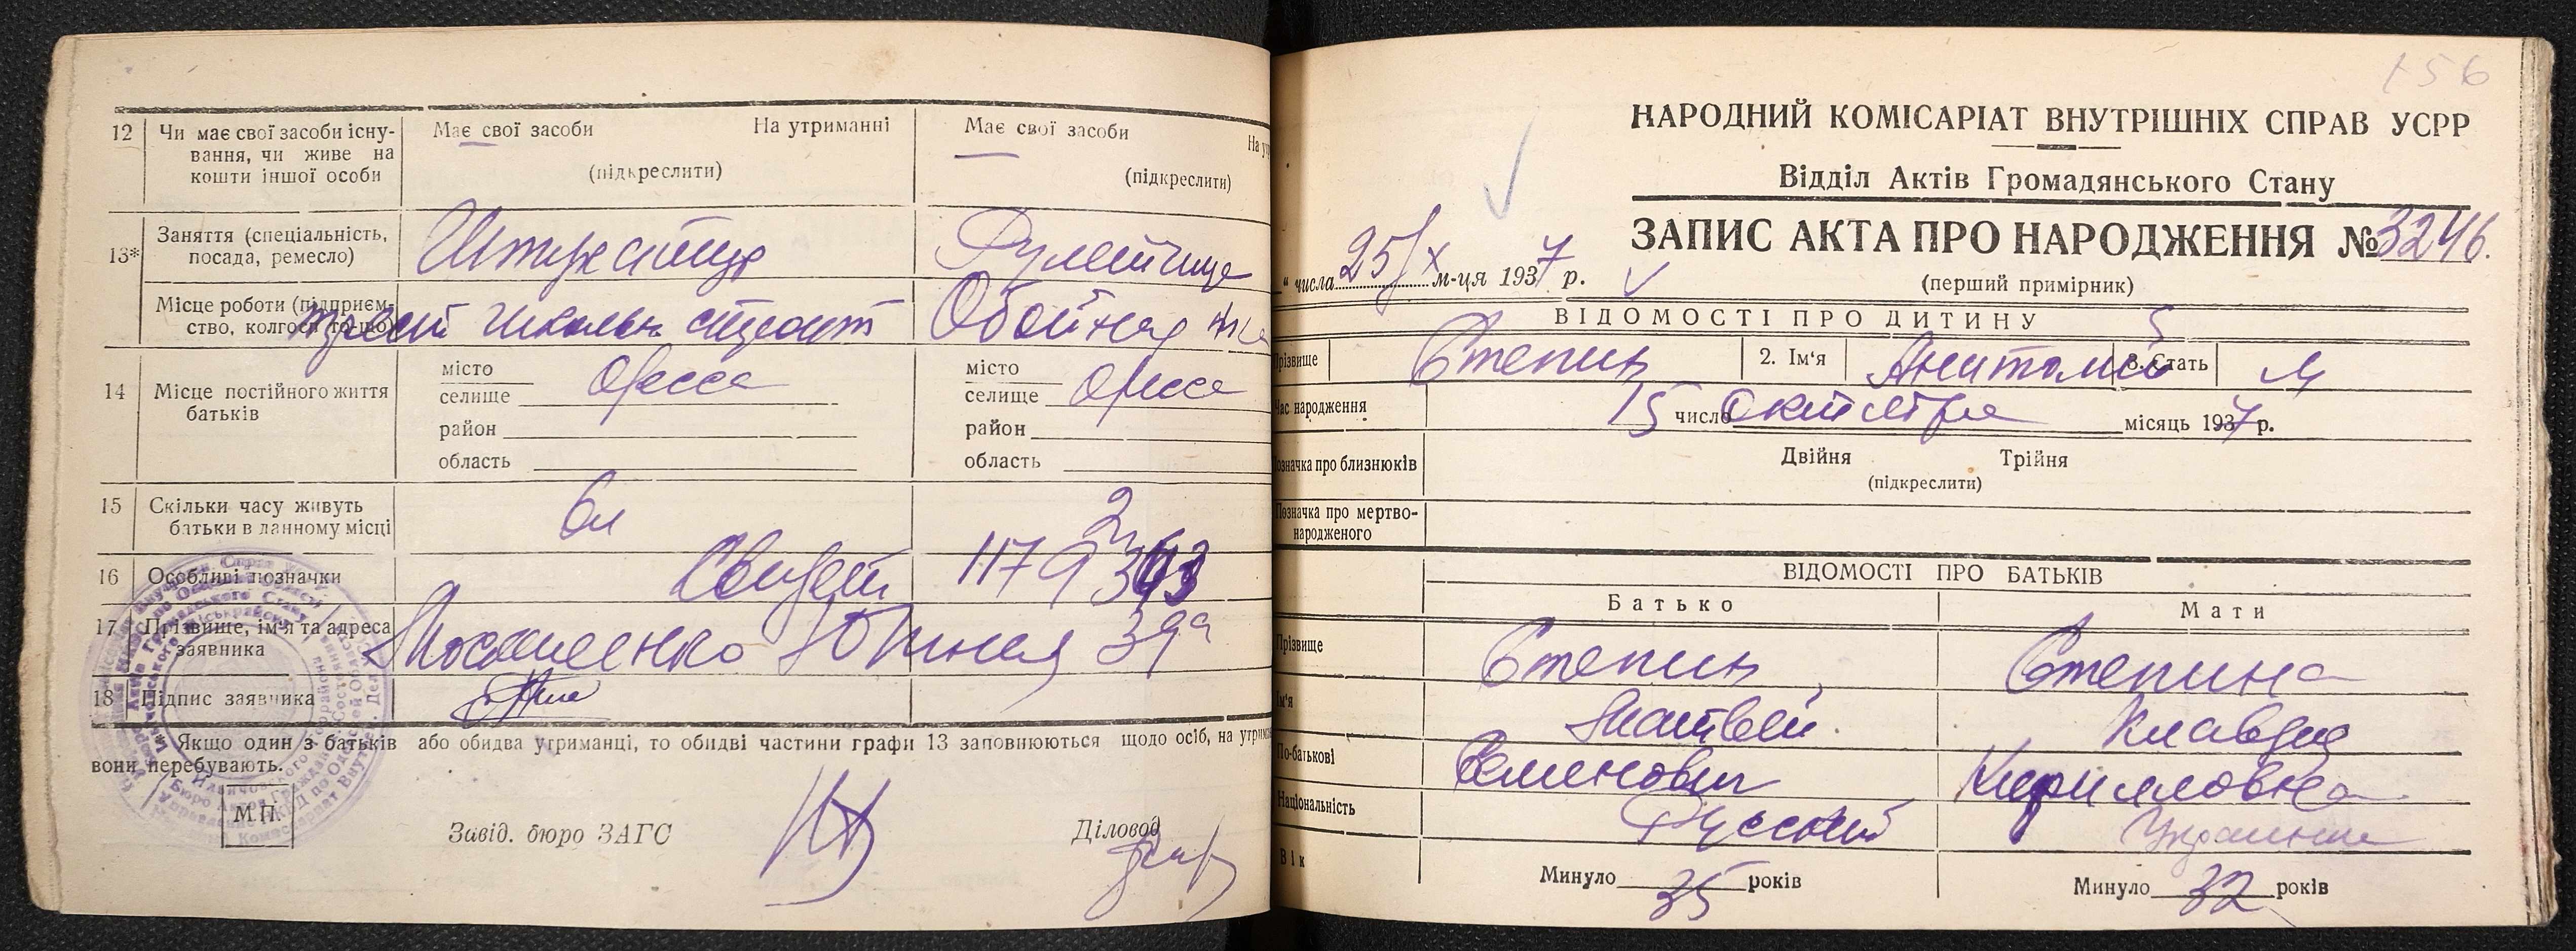 12 Чи має свої засоби існу-
вання, чи живе на
кошти іншої особи
Має свої засоби На утриманні
(підкреслити)
Має свої засоби
(підкреслити)
13* Заняття (спеціальність,
посада, ремесло)
Штукатур
Місце роботи (підприєм-
ство, колгосп то-що)
Обойная
14 Місце постійного життя
батьків
місто Одесса
селище
район
область
місто Одесса
селище
район
область
15 Скільки часу живуть
батьки в данному місці
6 л
16 Особливі позначки
17 Прізвище, ім'я та адреса
заявника
39а
18 Підпис заявника
* Якщо один з батьків або обидва утриманці, то обидві частини графи 13 заповнюються щодо осіб, на
вони перебувають.
М.П.
Завід. бюро ЗАГС
Діловод
156
НАРОДНИЙ КОМІСАРІАТ ВНУТРІШНІХ СПРАВ УСРР
Відділ Актів Громадянського Стану
ЗАПИС АКТА ПРО НАРОДЖЕННЯ № 3246.
„ числа 25/X м-ця 1937 р.
(перший примірник)
ВІДОМОСТІ ПРО ДИТИНУ
Прізвище Степин 2. Ім'я Анатолий 3. Стать М
Час народження 15 число Октября місяць 1937 р.
Позначка про близнюків Двійня Трійня
(підкреслити)
Позначка про мертво-
народженого
ВІДОМОСТІ ПРО БАТЬКІВ
Батько Мати
Прізвище Степин Степина
Ім'я Матвей Клавдия
По-батькові Семенович Кирилловна
Національність Русский Украинка
Вік Минуло 35 років Минуло 32 років